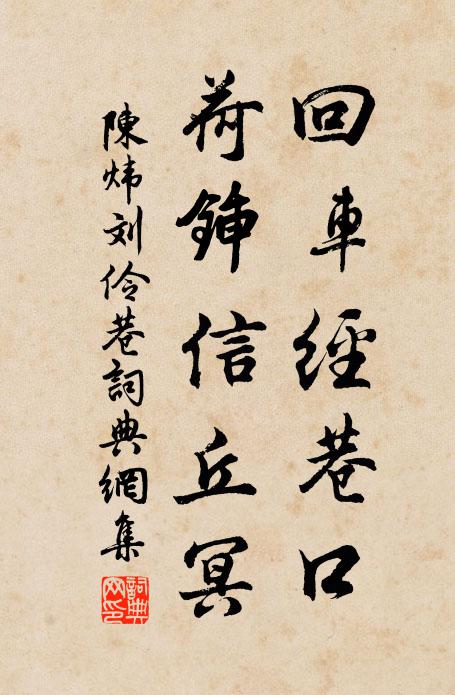 回車經巷口
荷鍤信丘冥
陳炜刘伶巷詞典網集
詞典网印